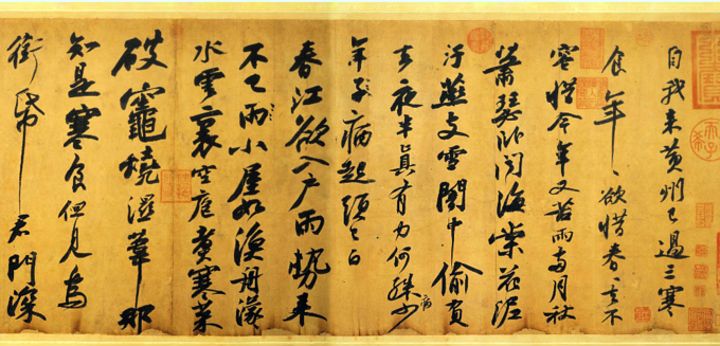 自我來黃州已過三寒
食年、欲惜春、去不
容惜今年又苦雨兩月秋
蕭瑟卧聞海棠花泥
汙燕支雪闇中偷負
去夜半真有力何殊少
病
年子病起頭已白
春江欲入户雨勢來
不已雨小屋如漁舟濛、
水雲裏空庖煮寒菜
破竈燒濕葦那
知是寒食但見烏
銜帋君門深